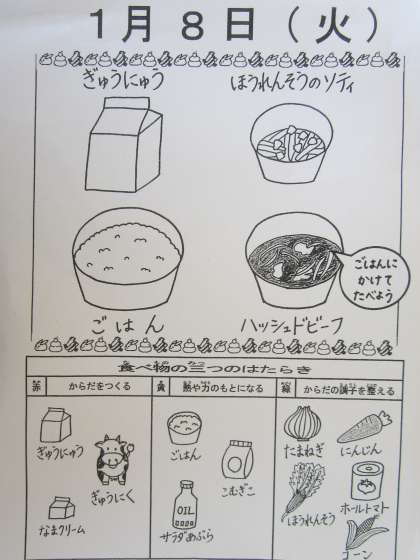 1月8日(火)
ぎゅうにゅう ほうれんそうのソティ
ごはんに
かけて
たべよう
ごはん ハッシュドビーフ
食べ物の三つのはたらき
赤 からだをつくる 黄 熱や力のもとになる 緑 からだの調子を整える
ぎゅうにゅう ごはん たまねぎ にんじん
ぎゅうにく こむぎこ
ほうれんそう ホールトマト
なまクリーム OIL
サラダあぶら コーン